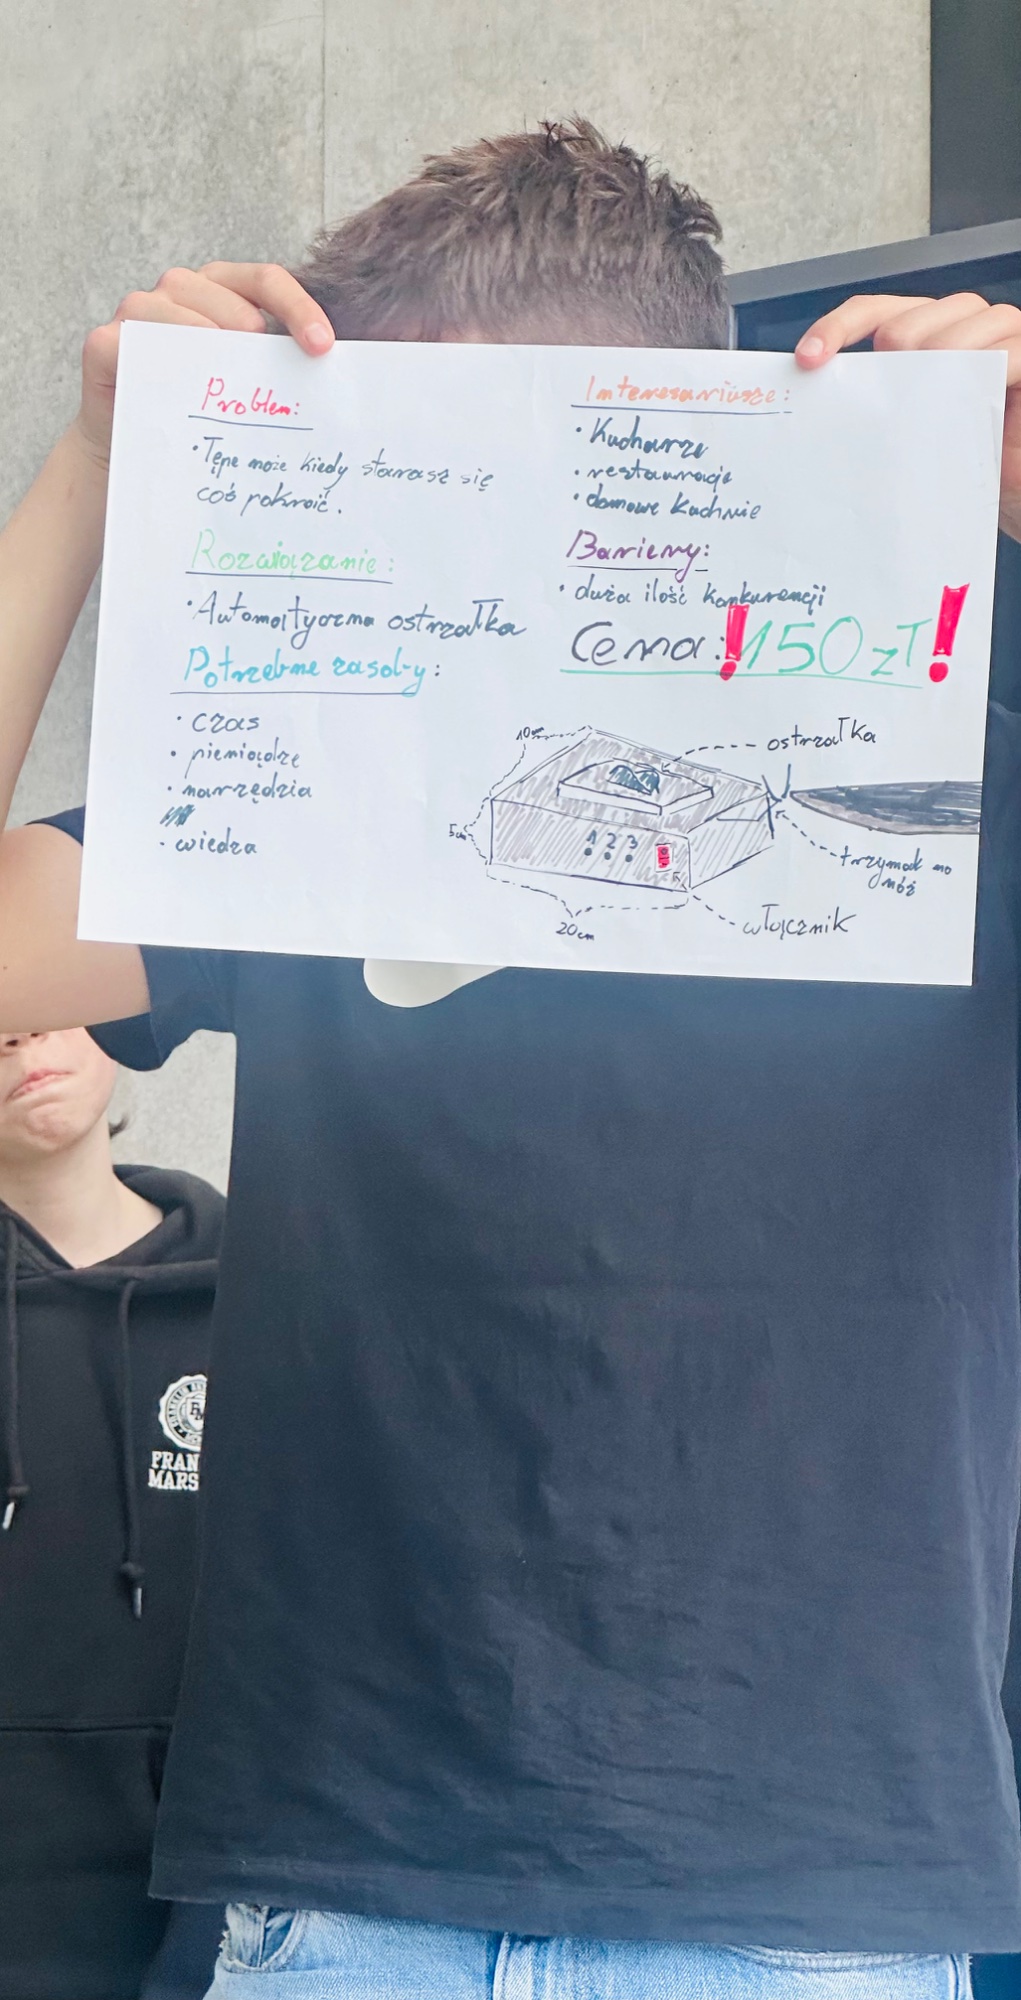 Problem:
• Tępe noże kiedy starasz się
coś pokroić.
Rozwiązanie:
• Automatyczna ostrzałka
Potrzebne zasoby:
• czas
• pieniądze
• narzędzia
• wiedza
Interesariusze:
• Kucharze
• restauracje
• domowe kuchnie
Bariery:
• duża ilość konkurencji
Cena: !150 zł!
10cm
ostrzałka
5cm
1 2 3
trzymak na
nóż
włącznik
20cm
FRAN
MARS